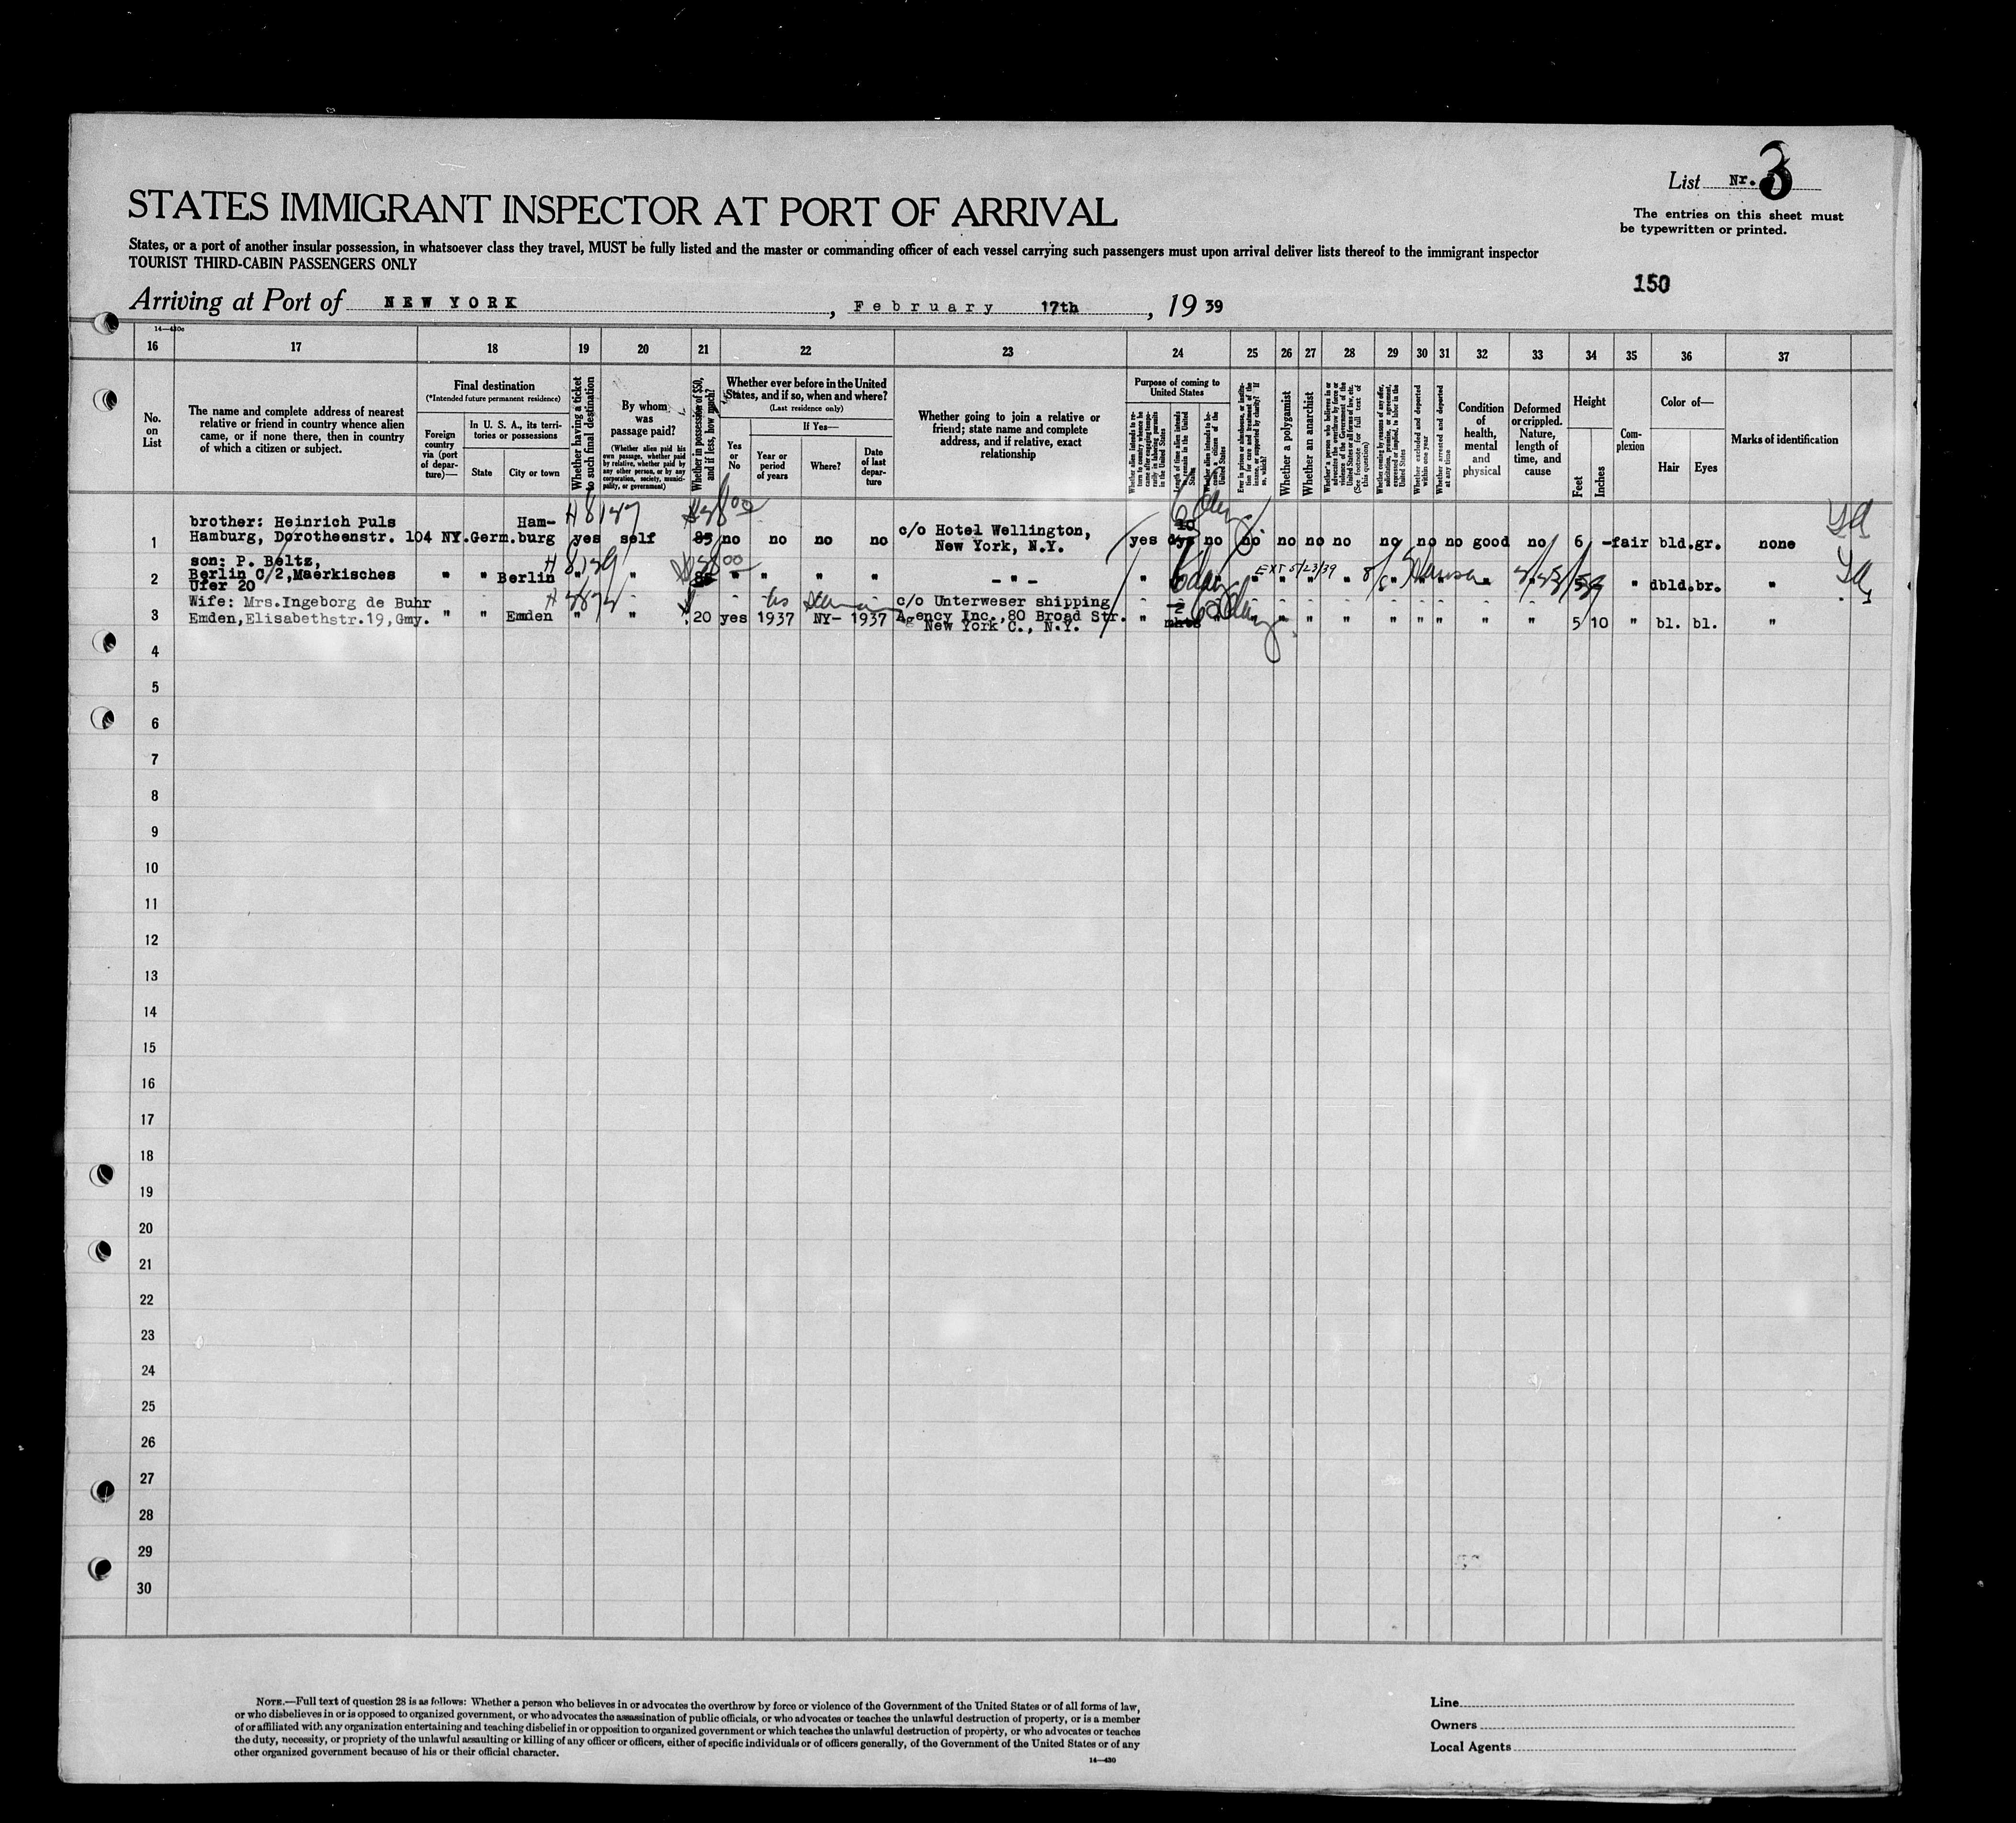 List Nr. 3
STATES IMMIGRANT INSPECTOR AT PORT OF ARRIVAL
The entries on this sheet must
be typewritten or printed.
States, or a port of another insular possession, in whatsoever class they travel, MUST be fully listed and the master or commanding officer of each vessel carrying such passengers must upon arrival deliver lists thereof to the immigrant inspector
TOURIST THIRD-CABIN PASSENGERS ONLY
150
Arriving at Port of NEW YORK, February 17th, 19 39
16 17 18 19 20 21 22 23 24 25 26 27 28 29 30 31 32 33 34 35 36 37
No.
on
List
The name and complete address of nearest
relative or friend in country whence alien
came, or if none there, then in country
of which a citizen or subject.
Final destination
(*Intended future permanent residence)
Foreign
country
via (port
of depar-
ture)—
In U. S. A., its terri-
tories or possessions
State
City or town
Whether having a ticket
to such final destination
By whom
was
passage paid?
(Whether alien paid his
own passage, whether paid
by relative, whether paid by
any other person, or by any
corporation, society, munici-
pality, or government)
Whether in possession of $50,
and if less, how much?
Whether ever before in the United
States, and if so, when and where?
(Last residence only)
Yes
or
No
If Yes—
Year or
period
of years
Where?
Date
of last
depar-
ture
Whether going to join a relative or
friend; state name and complete
address, and if relative, exact
relationship
Purpose of coming to
United States
Whether alien intends to re-
turn to country whence he
came after engaging tempo-
rarily in laboring pursuits
in the United States
Length of time alien intends
to remain in the United
States
Whether alien intends to be-
come a citizen of the
United States
Ever in prison or almshouse, or institu-
tion for care and treatment of the
insane, or supported by charity? If
so, which?
Whether a polygamist
Whether an anarchist
Whether a person who believes in or
advocates the overthrow by force or
violence of the Government of the
United States or all forms of law, etc.
(See footnote for full text of
this question)
Whether coming by reason of any offer,
solicitation, promise, or agreement,
expressed or implied, to labor in the
United States
Whether excluded and deported
within one year
Whether arrested and deported
at any time
Condition
of
health,
mental
and
physical
Deformed
or crippled.
Nature,
length of
time, and
cause
Height
Feet
Inches
Com-
plexion
Color of—
Hair
Eyes
Marks of identification
H 8147
brother: Heinrich Puls Ham-
1 Hamburg, Dorotheenstr. 104 NY.Germ.burg yes self 85 no no no no c/o Hotel Wellington,
New York, N.Y.
yes 10 dys no no no no no no no no good no 6 - fair bld. gr. none
son: P. Beltz,
2 Berlin C/2,Maerkisches " " Berlin " " " " " " - " - " " " EXT 5/23/39 " " " dbld.br. "
Ufer 20
Wife: Mrs.Ingeborg de Buhr
3 Emden,Elisabethstr.19,Gmy. " " Emden " " 20 yes 1937 NY- 1937 c/o Unterweser shipping
Agency Inc.,80 Broad Str.
New York C., N.Y.
" 2 mhts " " " " " " " " " 5 10 " bl. bl. "
4
5
6
7
8
9
10
11
12
13
14
15
16
17
18
19
20
21
22
23
24
25
26
27
28
29
30
NOTE.—Full text of question 28 is as follows: Whether a person who believes in or advocates the overthrow by force or violence of the Government of the United States or of all forms of law,
or who disbelieves in or is opposed to organized government, or who advocates the assassination of public officials, or who advocates or teaches the unlawful destruction of property, or is a member
of or affiliated with any organization entertaining and teaching disbelief in or opposition to organized government or which teaches the unlawful destruction of property, or who advocates or teaches
the duty, necessity, or propriety of the unlawful assaulting or killing of any officer or officers, either of specific individuals or of officers generally, of the Government of the United States or of any
other organized government because of his or their official character.
14—430
Line
Owners
Local Agents